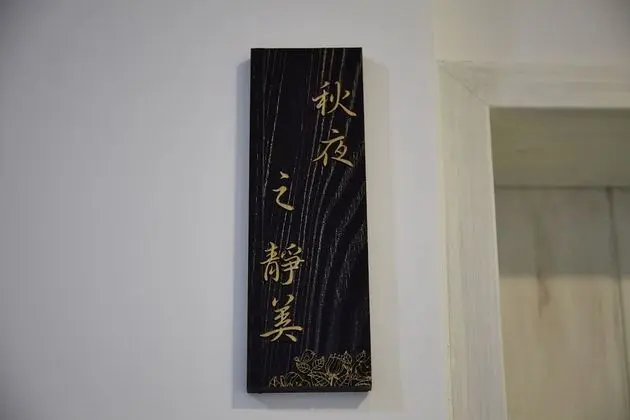 秋夜
之靜美